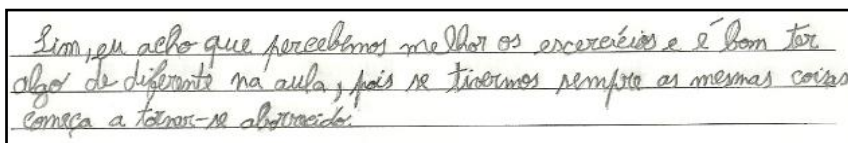 Sim, eu acho que percebemos melhor os escercécios e é bom ter
algo de diferente na aula, pois se tivermos sempre as mesmas coisas
começa a tornar-se aborrecido.